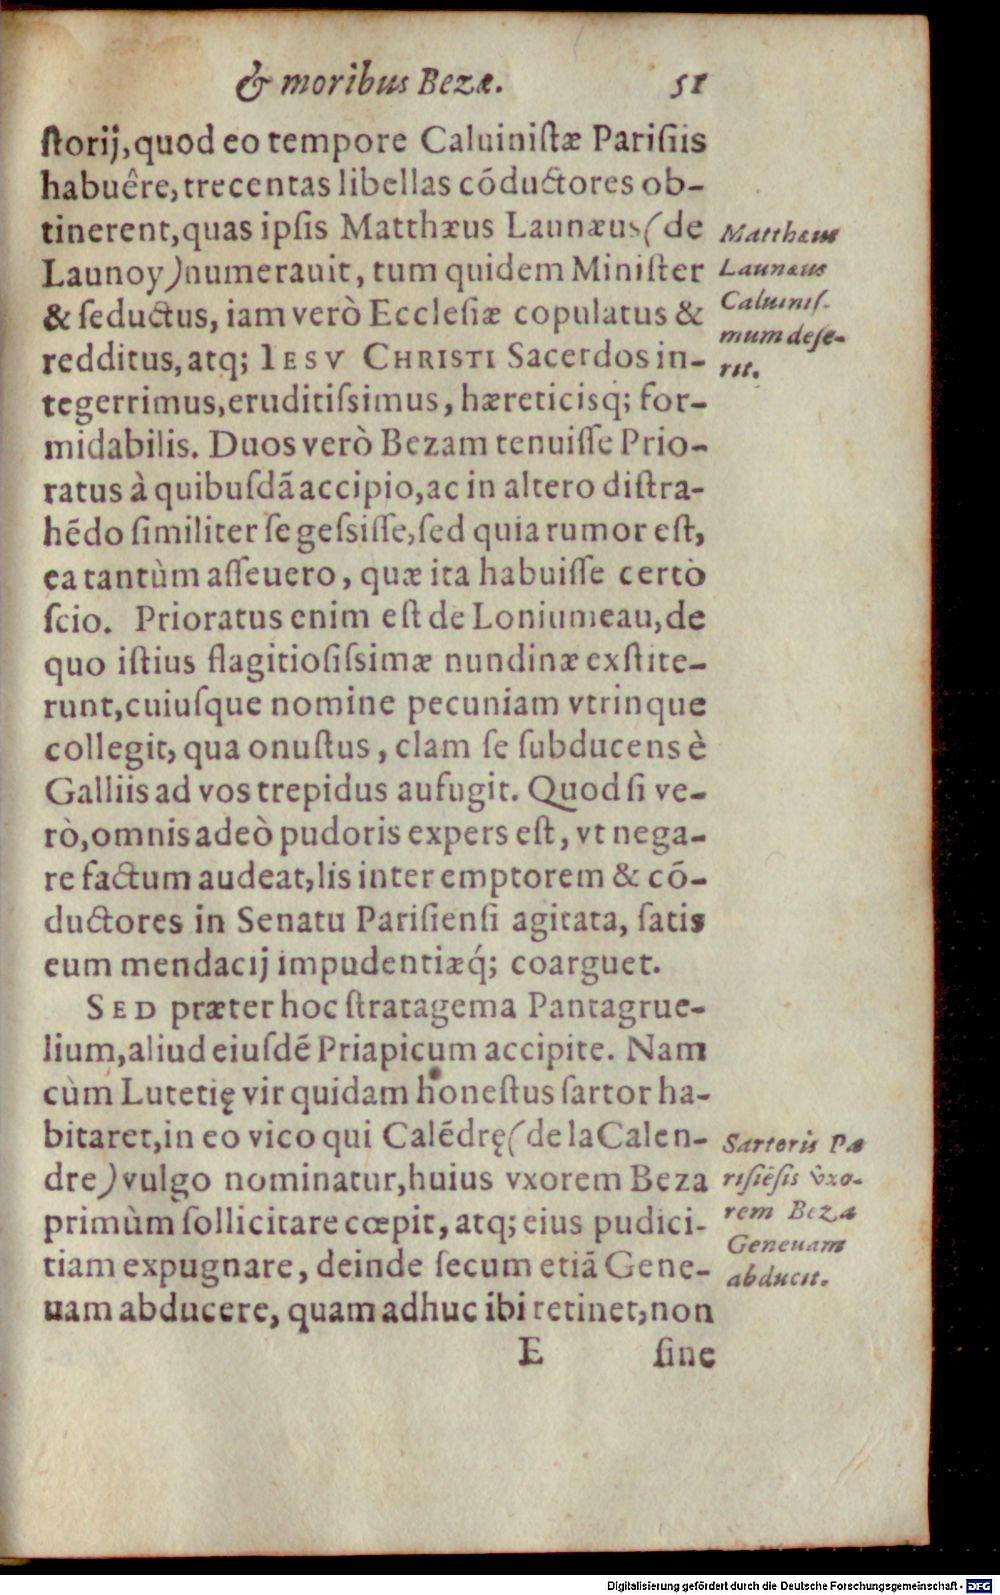 & moribus Bezæ. 51
ſtorij, quod eo tempore Caluiniſtæ Pariſiis
habuêre, trecentas libellas cōductores ob-
tinerent, quas ipſis Matthæus Launæus (de
Launoy) numerauit, tum quidem Miniſter
& ſeductus, iam verò Eccleſiæ copulatus &
redditus, atq; IESV CHRISTI Sacerdos in-
tegerrimus, eruditiſsimus, hæreticisq; for-
midabilis. Duos verò Bezam tenuiſſe Prio-
ratus à quibuſdã accipio, ac in altero diſtra-
hēdo ſimiliter ſe geſsiſſe, ſed quia rumor eſt,
ea tantùm aſſeuero, quæ ita habuiſſe certò
ſcio. Prioratus enim eſt de Loniumeau, de
quo iſtius flagitioſiſsimæ nundinæ exſtite-
runt, cuiuſque nomine pecuniam vtrinque
collegit, qua onuſtus, clam ſe ſubducens è
Galliis ad vos trepidus aufugit. Quod ſi ve-
rò, omnis adeò pudoris expers eſt, vt nega-
re factum audeat, lis inter emptorem & cō-
ductores in Senatu Pariſienſi agitata, ſatis
eum mendacij impudentiæq́; coarguet.
SED præter hoc ſtratagema Pantagrue-
lium, aliud eiuſdē Priapicum accipite. Nam
cùm Lutetię vir quidam honeſtus ſartor ha-
bitaret, in eo vico qui Calēdrę (de la Calen-
dre) vulgo nominatur, huius vxorem Beza
primùm ſollicitare cœpit, atq; eius pudici-
tiam expugnare, deinde ſecum etiã Gene-
uam abducere, quam adhuc ibi retinet, non
E ſine
Matthæus
Launæus
Caluiniſ-
mum deſe-
rit.
Sartoris Pa
riſiēſis vxo-
rem Beza
Geneuam
abducit.
Digitalisierung gefördert durch die Deutsche Forschungsgemeinschaft - DFG